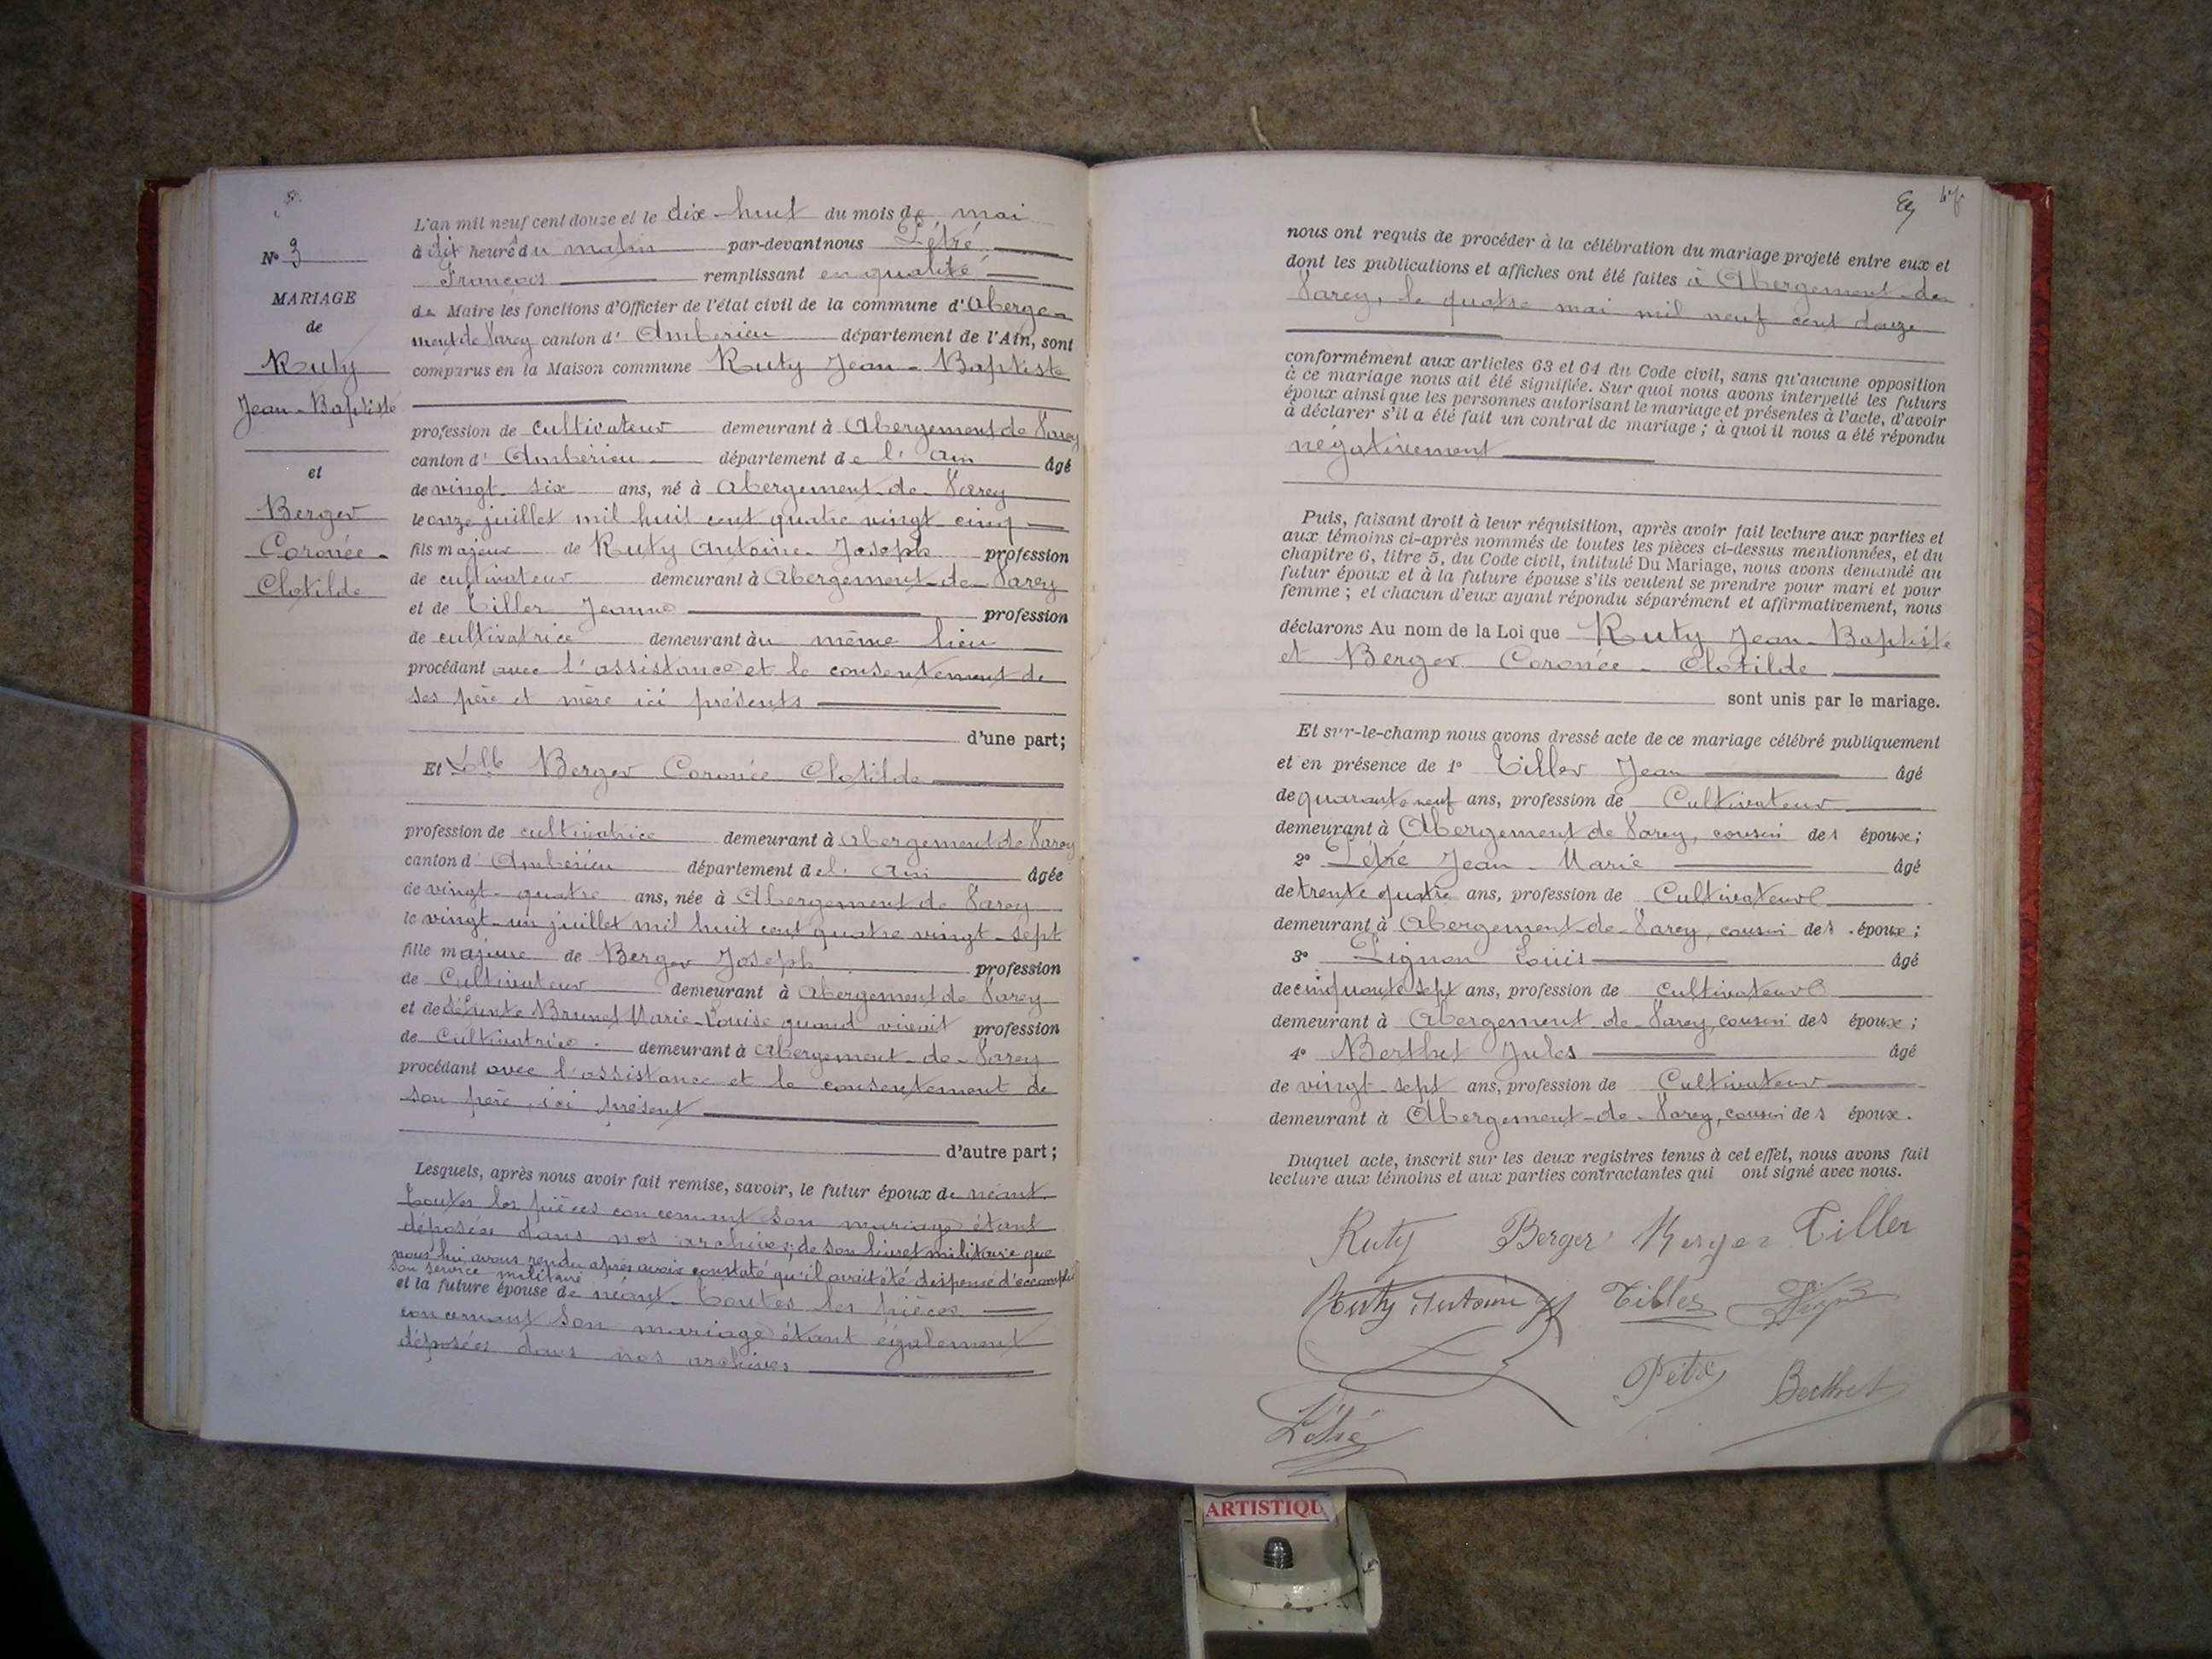 N° 3
MARIAGE
de
Ruty
Jean-Baptiste
et
Berger
Coronée-
Clotilde
L'an mil neuf cent douze et le dix-huit du mois de mai
à dix heures du matin par-devant nous Létré
François remplissant en qualité
de Maire les fonctions d'Officier de l'état civil de la commune d'Aberge-
ment de Varey canton d'Ambérieu département de l'Ain, sont
comparus en la Maison commune Ruty Jean-Baptiste
profession de cultivateur demeurant à Abergement de Varey
canton d'Ambérieu département de l'Ain âgé
de vingt-six ans, né à Abergement-de-Varey
le onze juillet mil huit cent quatre vingt cinq
fils majeur de Ruty Antoine Joseph profession
de cultivateur demeurant à Abergement-de-Varey
et de Tiller Jeanne profession
de cultivatrice demeurant au même lieu
procédant avec l'assistance et le consentement de
ses père et mère ici présents
d'une part;
Et Dlle Berger Coronée Clotilde
profession de cultivatrice demeurant à Abergement de Varey
canton d'Ambérieu département de l'Ain âgée
de vingt-quatre ans, née à Abergement de Varey
le vingt-un juillet mil huit cent quatre vingt-sept
fille majeure de Berger Joseph profession
de Cultivateur demeurant à Abergement de Varey
et de défunte Brunet Marie-Louise quand vivait profession
de Cultivatrice. demeurant à Abergement-de-Varey
procédant avec l'assistance et le consentement de
son père, ici présent
d'autre part;
Lesquels, après nous avoir fait remise, savoir, le futur époux de néant.
Toutes les pièces concernant son mariage étant
déposées dans nos archives; de son livret militaire que
nous lui avons rendu après avoir constaté qu'il avait été dispensé d'accomplir
son service militaire
et la future épouse de néant. Toutes les pièces
concernant son mariage étant également
déposées dans nos archives
nous ont requis de procéder à la célébration du mariage projeté entre eux et
dont les publications et affiches ont été faites à Abergement-de-
Varey, le quatre mai mil neuf cent douze
conformément aux articles 63 et 64 du Code civil, sans qu'aucune opposition
à ce mariage nous ait été signifiée. Sur quoi nous avons interpellé les futurs
époux ainsi que les personnes autorisant le mariage et présentes à l'acte, d'avoir
à déclarer s'il a été fait un contrat de mariage; à quoi il nous a été répondu
négativement
Puis, faisant droit à leur réquisition, après avoir fait lecture aux parties et
aux témoins ci-après nommés de toutes les pièces ci-dessus mentionnées, et du
chapitre 6, titre 5, du Code civil, intitulé Du Mariage, nous avons demandé au
futur époux et à la future épouse s'ils veulent se prendre pour mari et pour
femme; et chacun d'eux ayant répondu séparément et affirmativement, nous
déclarons Au nom de la Loi que Ruty Jean-Baptiste
et Berger Coronée-Clotilde
sont unis par le mariage.
Et sur-le-champ nous avons dressé acte de ce mariage célébré publiquement
et en présence de 1° Tiller Jean âgé
de quarante neuf ans, profession de Cultivateur
demeurant à Abergement de Varey, cousin des époux;
2° Létré Jean-Marie âgé
de trente quatre ans, profession de Cultivateur
demeurant à Abergement-de-Varey, cousin des époux;
3° Lignon Louis âgé
de cinquante sept ans, profession de Cultivateur
demeurant à Abergement de-Varey, cousin des époux;
4° Berthet Jules âgé
de vingt-sept ans, profession de Cultivateur
demeurant à Abergement-de-Varey, cousin des époux.
Duquel acte, inscrit sur les deux registres tenus à cet effet, nous avons fait
lecture aux témoins et aux parties contractantes qui ont signé avec nous.
Ruty Berger Berger Tiller
Ruty Antoine Tiller
Létré Berthet
Létré
ARTISTIQU